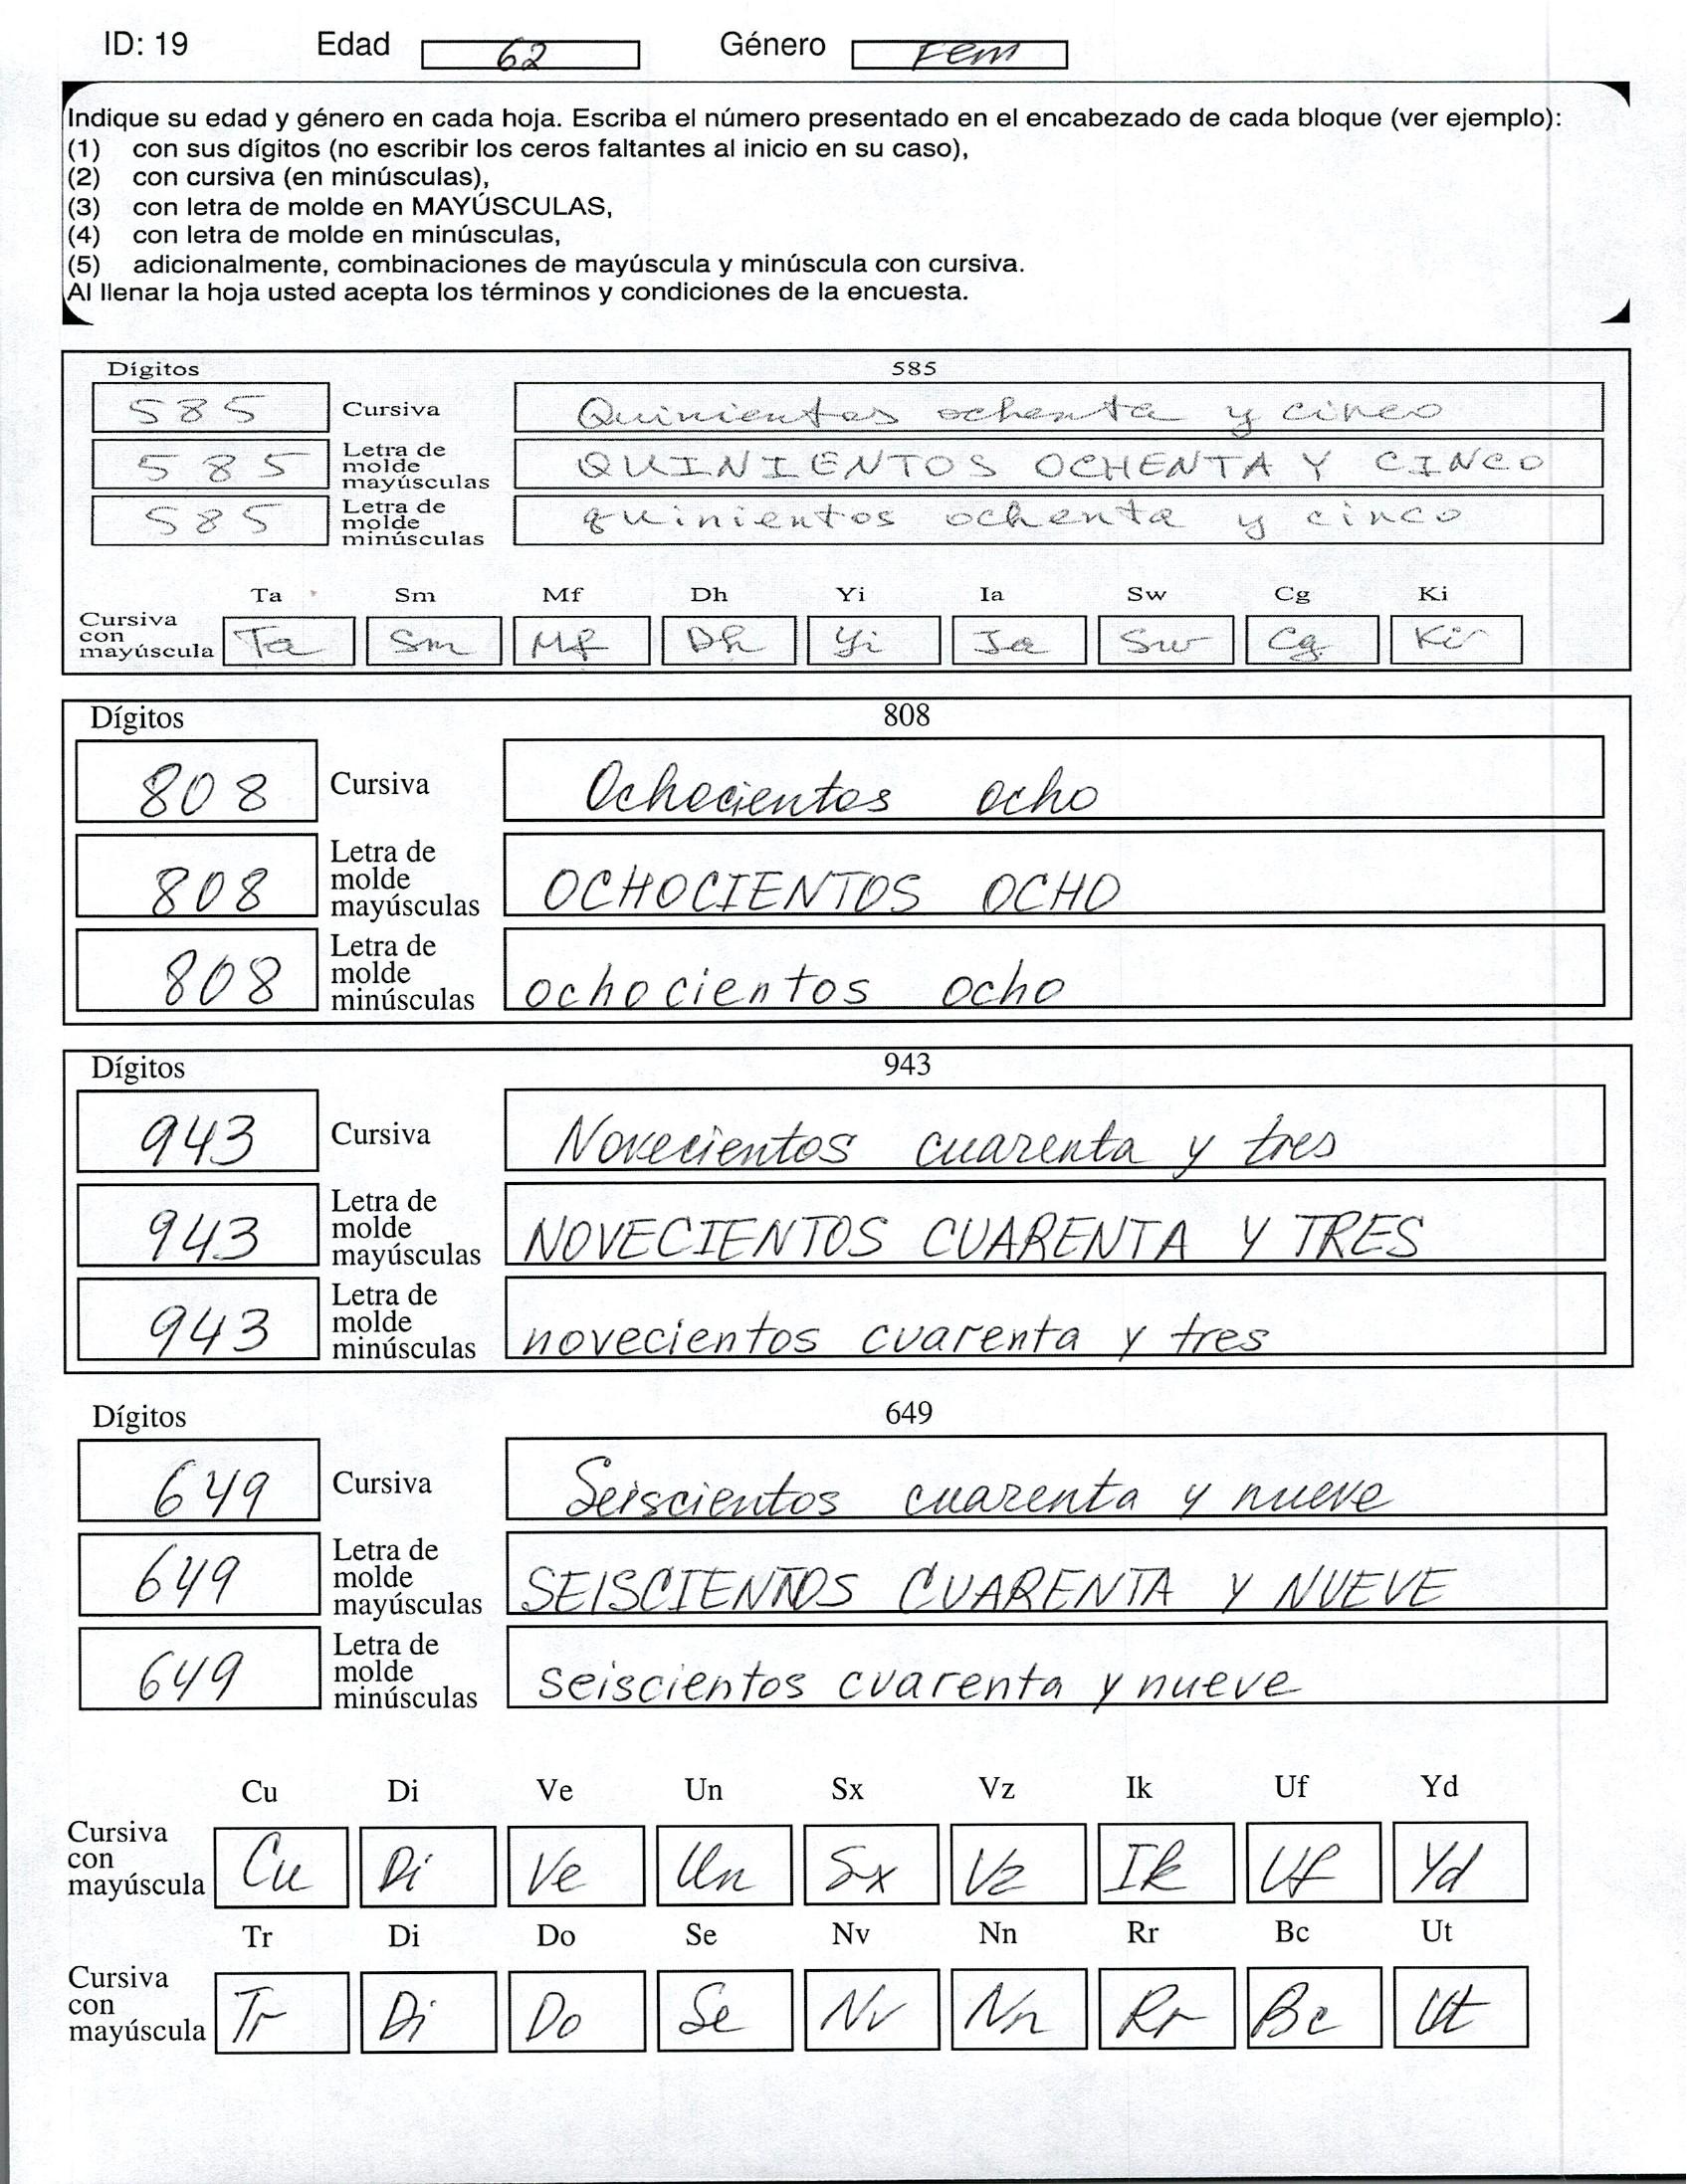 ID: 19 Edad 62 Género Fem
Indique su edad y género en cada hoja. Escriba el número presentado en el encabezado de cada bloque (ver ejemplo):
(1) con sus dígitos (no escribir los ceros faltantes al inicio en su caso),
(2) con cursiva (en minúsculas),
(3) con letra de molde en MAYÚSCULAS,
(4) con letra de molde en minúsculas,
(5) adicionalmente, combinaciones de mayúscula y minúscula con cursiva.
Al llenar la hoja usted acepta los términos y condiciones de la encuesta.
Dígitos 585
585 Cursiva Quinientos ochenta y cinco
585 Letra de molde mayúsculas QUINIENTOS OCHENTA Y CINCO
585 Letra de molde minúsculas quinientos ochenta y cinco
Ta Sm Mf Dh Yi Ia Sw Cg Ki
Cursiva con mayúscula Ta Sm Mf Dh Yi Ia Sw Cg Ki
Dígitos 808
808 Cursiva Ochocientos ocho
808 Letra de molde mayúsculas OCHOCIENTOS OCHO
808 Letra de molde minúsculas ochocientos ocho
Dígitos 943
943 Cursiva Novecientos cuarenta y tres
943 Letra de molde mayúsculas NOVECIENTOS CUARENTA Y TRES
943 Letra de molde minúsculas novecientos cuarenta y tres
Dígitos 649
649 Cursiva Seiscientos cuarenta y nueve
649 Letra de molde mayúsculas SEISCIENTOS CUARENTA Y NUEVE
649 Letra de molde minúsculas seiscientos cuarenta y nueve
Cu Di Ve Un Sx Vz Ik Uf Yd
Cursiva con mayúscula Cu Di Ve Un Sx Vz Ik Uf Yd
Tr Di Do Se Nv Nn Rr Bc Ut
Cursiva con mayúscula Tr Di Do Se Nv Nn Rr Bc Ut